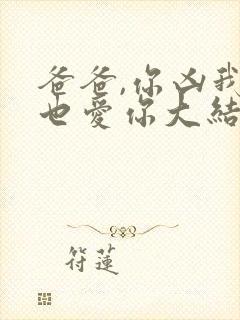 爸爸,你凶我
也爱你大結
符蓮